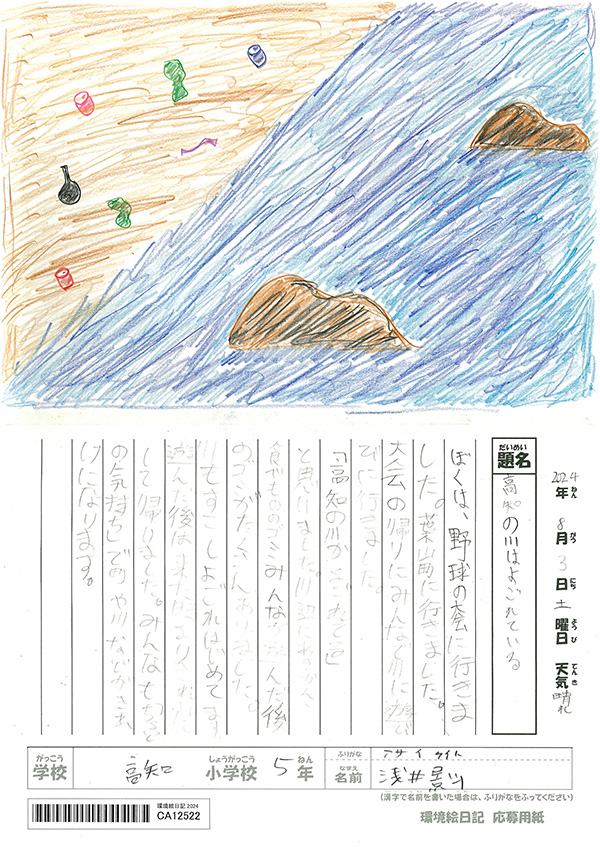 2024年ねん 8月がつ 3日にち 土曜日ようび 天気てんき 晴れ
だいめい
題名
高知の川はよごれている
ぼくは、野球の大会に行きま
した。葉山に行きました。
大会の帰りにみんなで川に遊
びに行きました。
「高知の川がよごれている」
と思いました。川辺
食べもののゴミ みんなが 後
のゴミがたくさんありました。
川もすこしよごれはじめてます
遊んだ後は
して帰りました。みんなも
の気持ち」で 川などがきれ
いになります。
がっこう
学校
高知
しょうがっこう
小学校
5
ねん
年
ふりがな
アサイ ケイト
なまえ
名前
浅井景
(漢字で名前を書いた場合は、ふりがなをふってください)
環境絵日記 2024
CA12522
環境絵日記 応募用紙